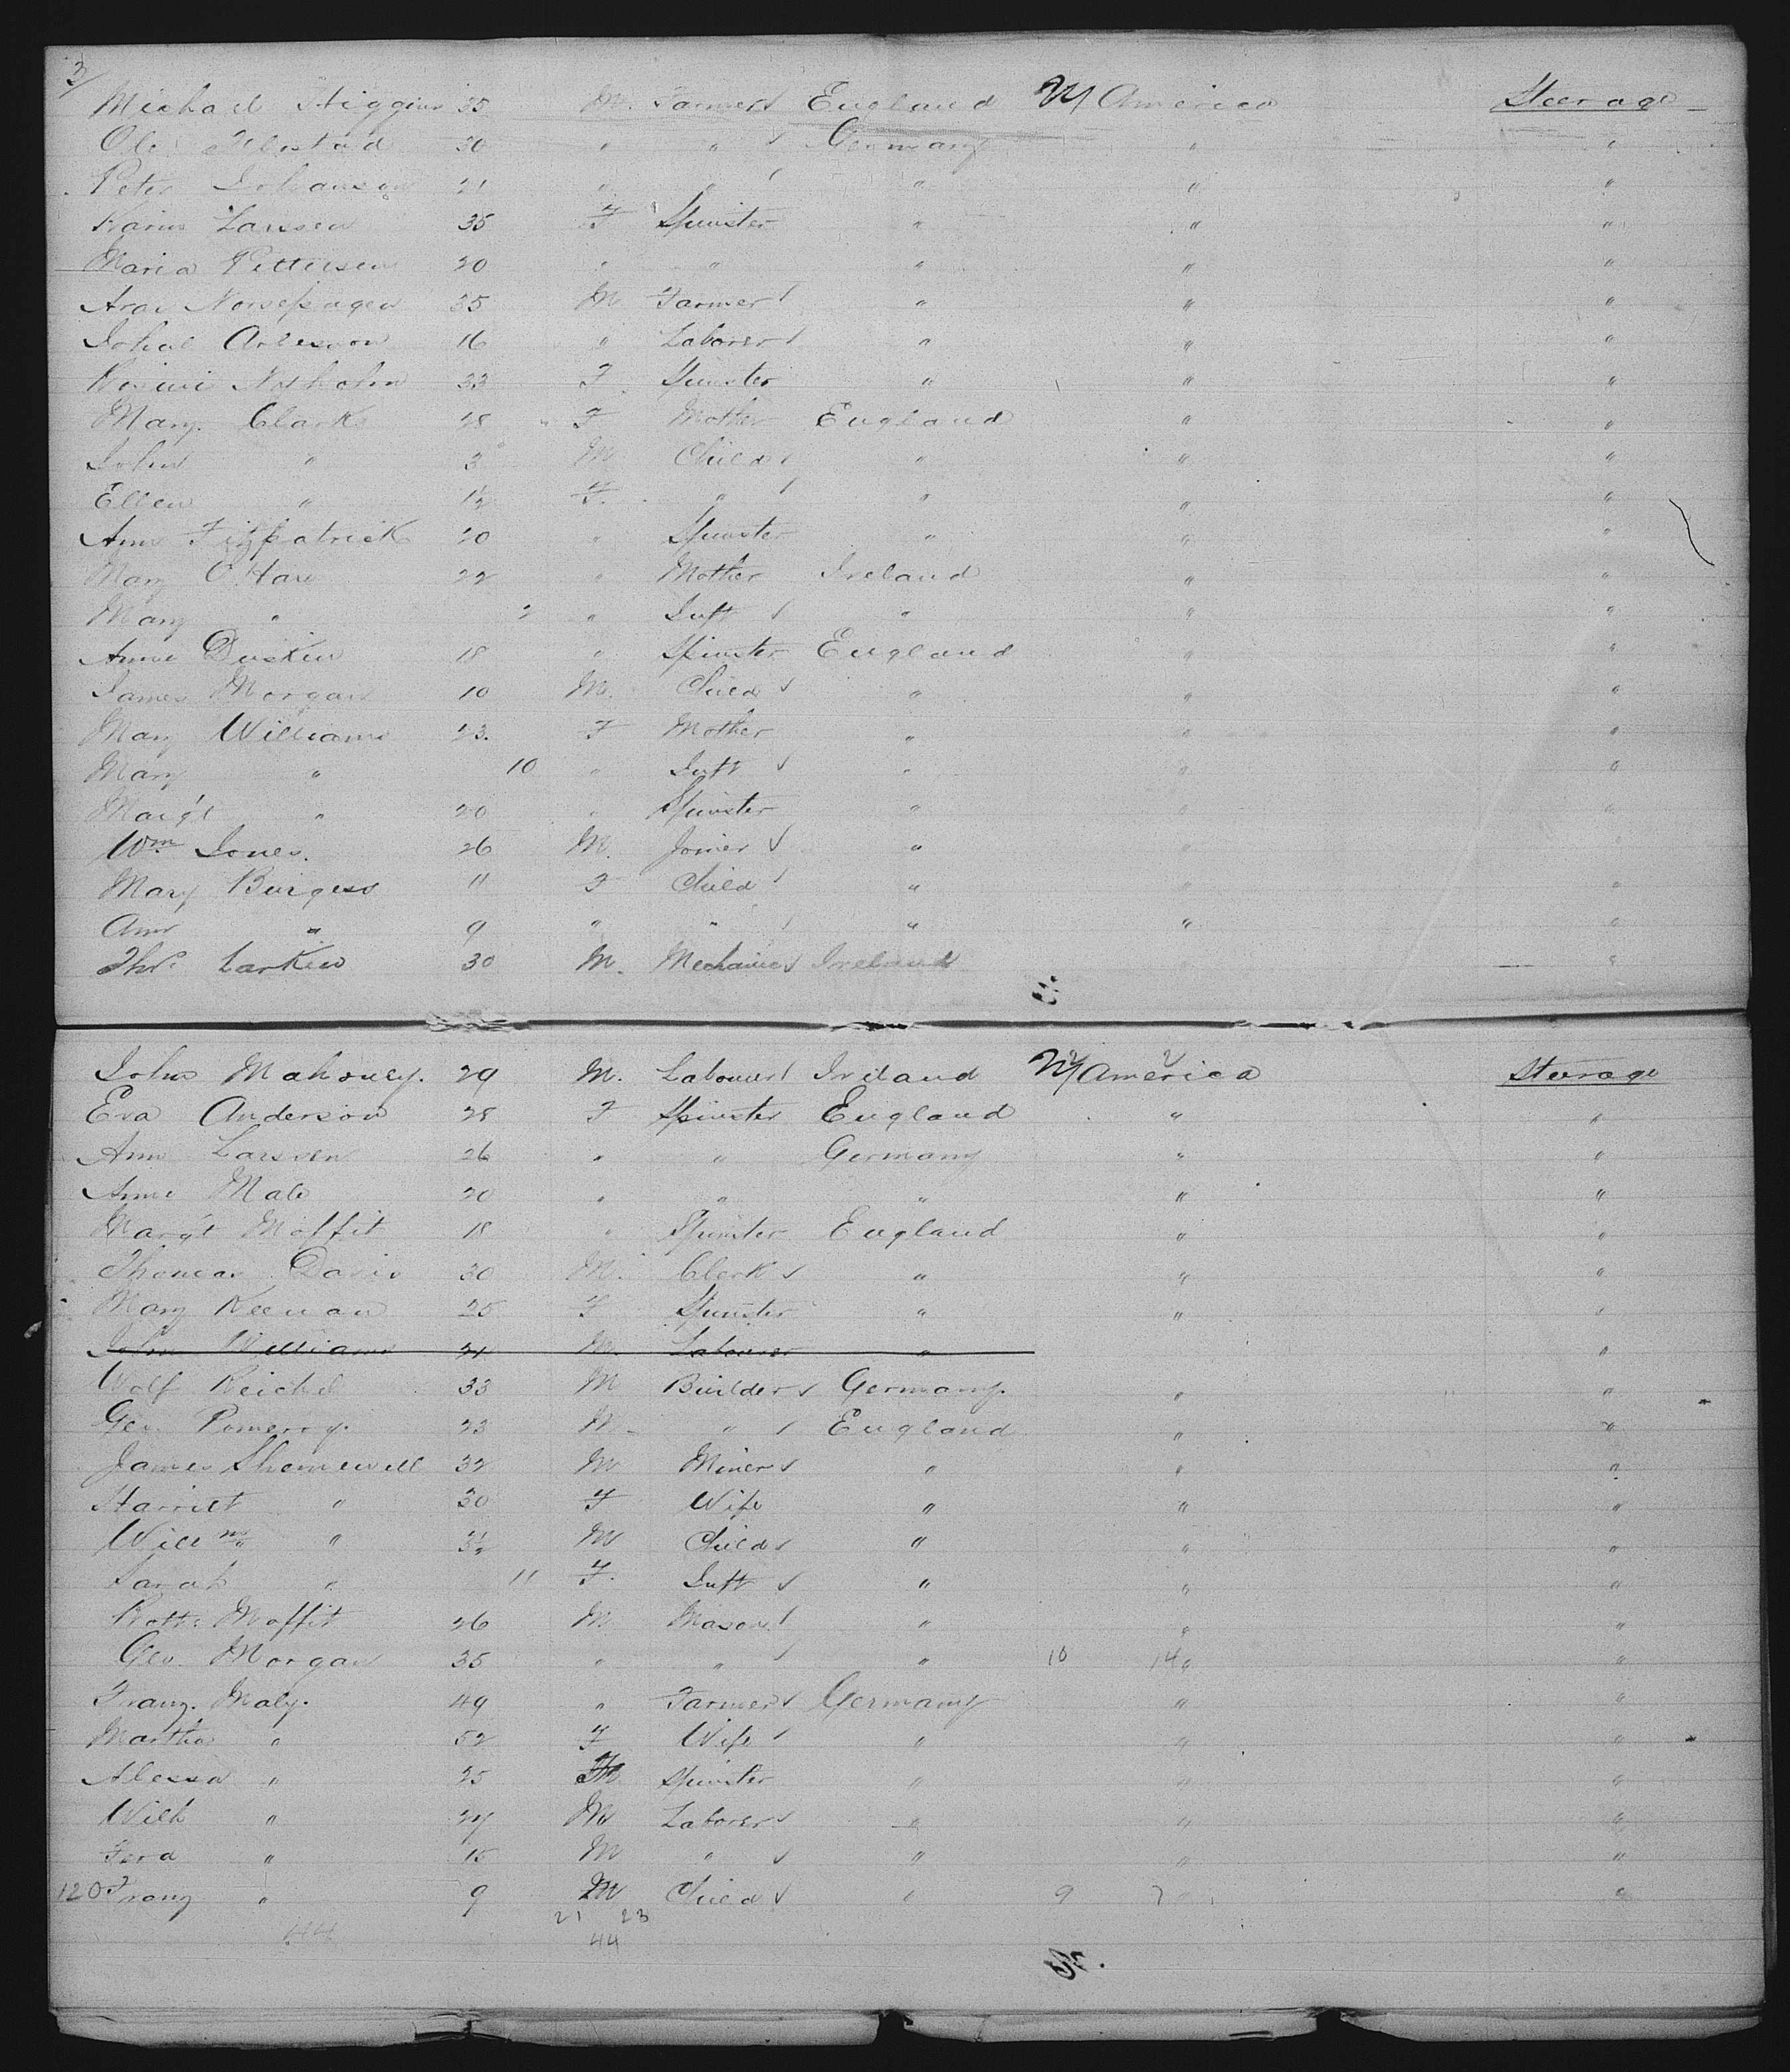 3/
Michael Higgins 35 M. Farmer England N/ America Steerage
Ole 30 " " Germany " "
Peter Johanson 21 " " " " "
Karin Larssen 35 F Spinster " " "
Maria Pettersen 20 " " " " "
35 M Farmer " " "
16 " Laborer " " "
33 F Spinster " " "
Mary Clark 28 F Mother England " "
John " 3 M Child " " "
Ellen " 1½ F. " " " "
Ann Fitzpatrick 20 " Spinster " " "
Mary O'Hare 22 " Mother Ireland " "
Mary " 2 " Inft " " "
Anne Duskin 18 " Spinster England " "
James Morgan 10 M. Child " " "
Mary Williams 23. F Mother " " "
Mary " 10 " Inft " " "
Marg't " 20 " Spinster " " "
Wm Jones. 26 M. Joiner " " "
Mary Burgess 11 F Child " " "
Ann " 9 " " " " "
Thos. Larkin 30 M. Mechanic Ireland "
John Mahoney. 29 M. Labourer Ireland N/ America Steerage
Eva Anderson 28 F Spinster England " "
Ann Larssen 26 " " Germany " "
Anne Male 20 " " " " "
Marg't Moffit 18 " Spinster England " "
Thomas Davis 30 M. Clerk " " "
Mary Keenan 25 F Spinster " " "
John Williams 21 M. Labourer " "
Wolf Reichel 33 M Builder Germany. " "
Geo. Pomeroy. 23 M. " England " "
James Shemewell 32 M Miner " " "
Harriet " 30 F Wife " " "
Willm " 3½ M Child " " "
Sarah " 11 F. Inft " " "
Robt. Moffit 26 M. Mason " " "
Geo. Morgan 35 " " " 10 14 " "
Franz. Maly. 49 " Farmer Germany " "
Martha " 52 F Wife " " "
Alessa " 25 F Spinster " " "
Wilh " 27 M Laborer " " "
Ferd " 15 M " " " "
120 Franz " 9 M Child " 9 7 "
21 23
144 44